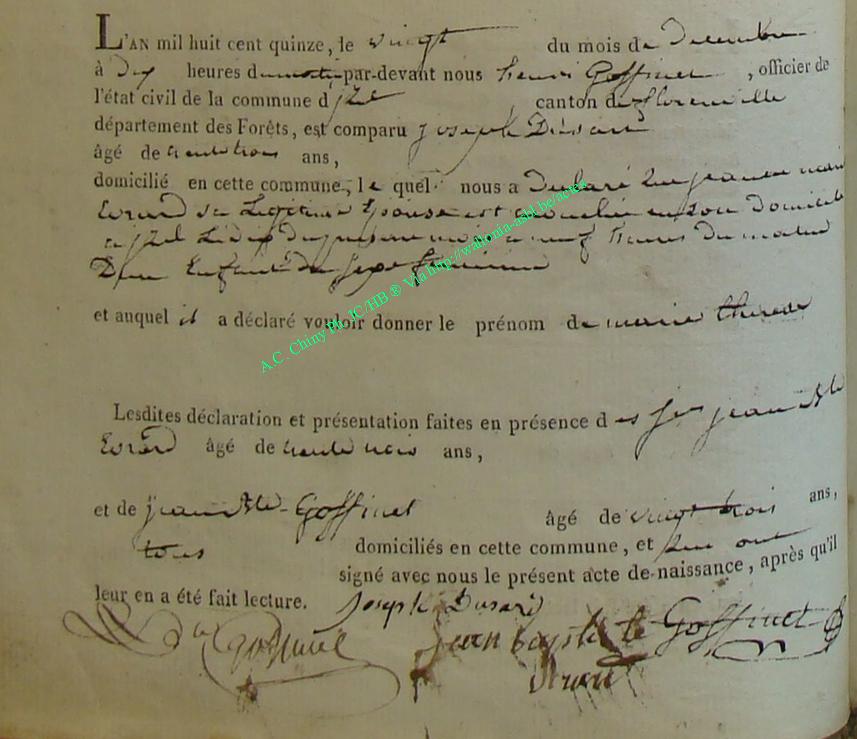 L'AN mil huit cent quinze, le vingt du mois de Decembre
à dix heures du matin par-devant nous henri Goffinet, officier de
l'état civil de la commune d jzel, canton de florenville
département des Forêts, est comparu joseph Dusard
âgé de trente trois ans,
domicilié en cette commune, le quel nous a declaré que jeanne marie
Evrard sa Legitime Epouse est accouchée en son Domicile
a jzel Le dix du present mois a neuf heures du matin
D'un Enfant du sexe feminin
et auquel il a déclaré vouloir donner le prénom de marie therese
Lesdites déclaration et présentation faites en présence des jean Bte
Evrard âgé de trente trois ans,
et de jean Bte Goffinet âgé de vingt trois ans,
tous domiciliés en cette commune, et ont
signé avec nous le présent acte de naissance, après qu'il
leur en a été fait lecture. Joseph Dusard
Goffinet jean baptiste Goffinet
Evrard
A.C. Chiny Ph. JC/HB ® Via http://wallonia-asbl.be/actes